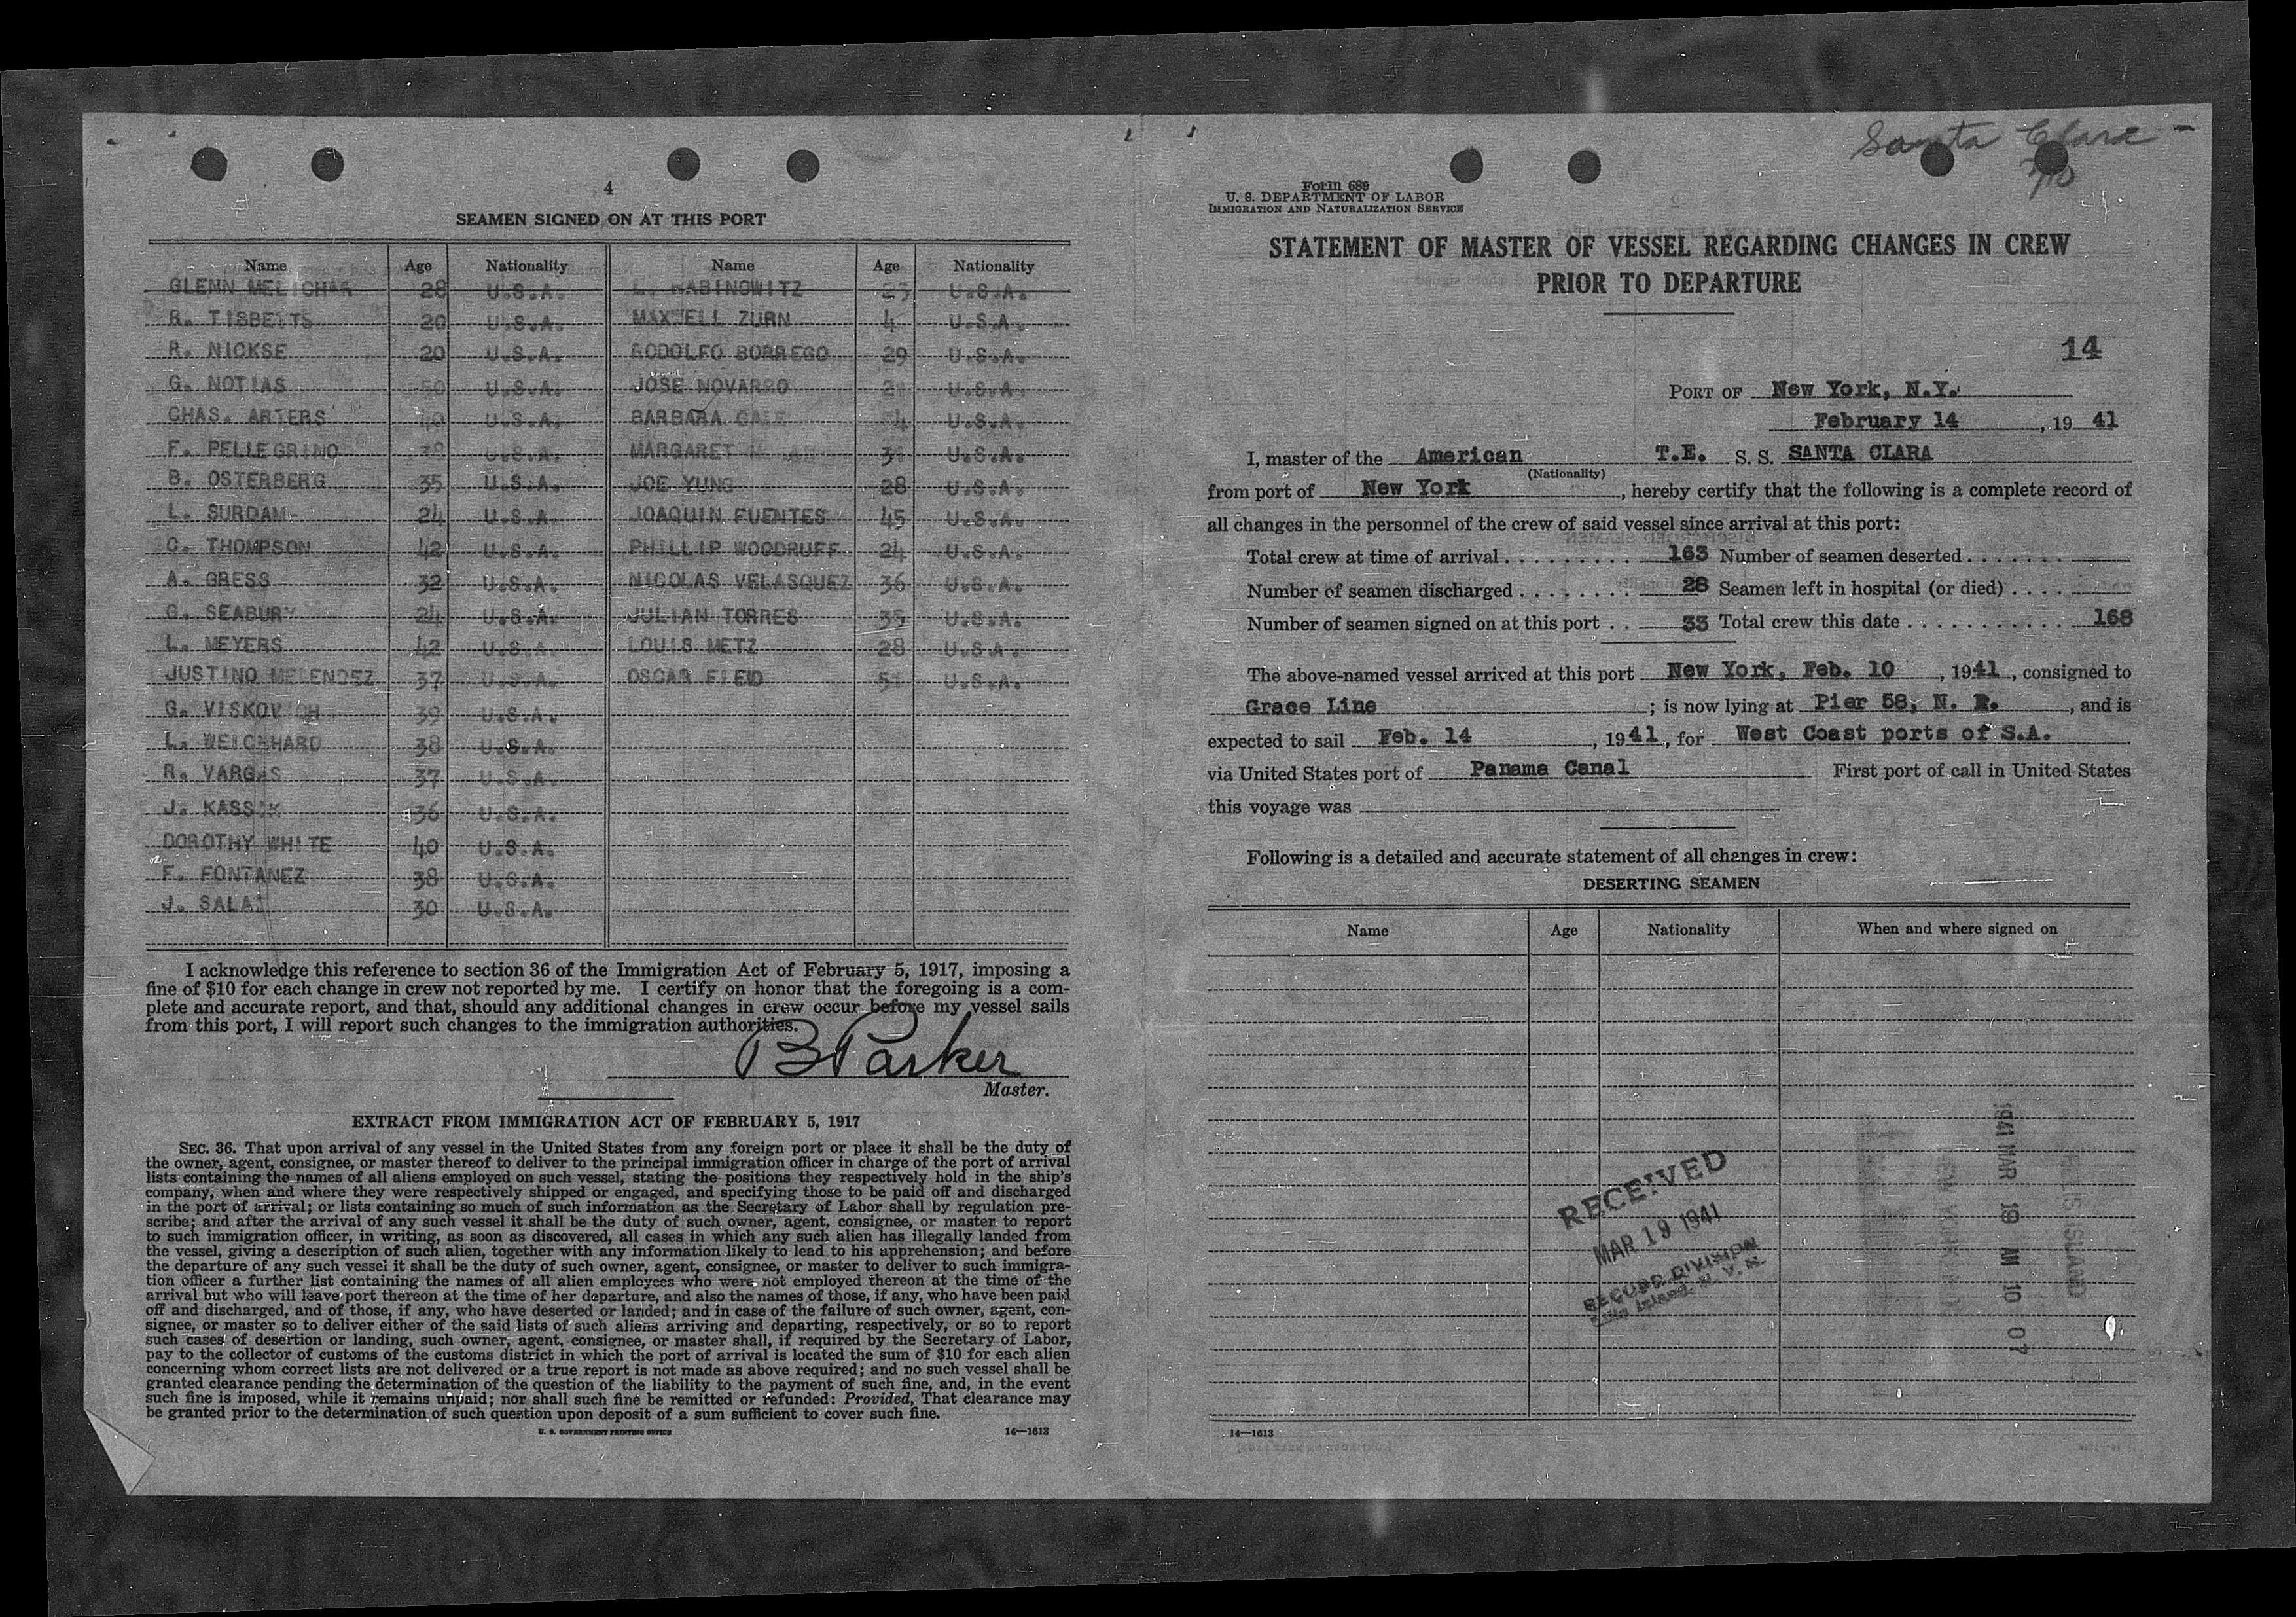 4
SEAMEN SIGNED ON AT THIS PORT
Name Age Nationality Name Age Nationality
GLENN MELICHAR 28 U.S.A. RABINOWITZ U.S.A.
R. TISBETTS 20 U.S.A. MAXWELL ZURN 4 U.S.A.
R. NICKSE 20 U.S.A. RODOLFO BORREGO 29 U.S.A.
G. NOTIAS 50 U.S.A. JOSE NOVARRO U.S.A.
CHAS. ARTERS 40 U.S.A. BARBARA U.S.A.
F. PELLEGRINO U.S.A. MARGARET U.S.A.
B. OSTERBERG 35 U.S.A. JOE YUNG 28 U.S.A.
L. SURDAM 24 U.S.A. JOAQUIN FUENTES 45 U.S.A.
C. THOMPSON 42 U.S.A. PHILLIP WOODRUFF 24 U.S.A.
A. GRESS 32 U.S.A. NICOLAS VELASQUEZ 36 U.S.A.
G. SEABURY 24 U.S.A. JULIAN TORRES 35 U.S.A.
L. MEYERS 42 U.S.A. LOUIS METZ 28 U.S.A.
JUSTINO MELENDEZ 37 U.S.A. OSCAR U.S.A.
G. VISKOVICH 39 U.S.A.
L. 38 U.S.A.
R. VARGAS 37 U.S.A.
J. 36 U.S.A.
DOROTHY WHITE 40 U.S.A.
F. FONTANEZ 38 U.S.A.
J. 30 U.S.A.
I acknowledge this reference to section 36 of the Immigration Act of February 5, 1917, imposing a
fine of $10 for each change in crew not reported by me. I certify on honor that the foregoing is a com-
plete and accurate report, and that, should any additional changes in crew occur before my vessel sails
from this port, I will report such changes to the immigration authorities.
B Parker
Master.
EXTRACT FROM IMMIGRATION ACT OF FEBRUARY 5, 1917
SEC. 36. That upon arrival of any vessel in the United States from any foreign port or place it shall be the duty of
the owner, agent, consignee, or master thereof to deliver to the principal immigration officer in charge of the port of arrival
lists containing the names of all aliens employed on such vessel, stating the positions they respectively hold in the ship's
company, when and where they were respectively shipped or engaged, and specifying those to be paid off and discharged
in the port of arrival; or lists containing so much of such information as the Secretary of Labor shall by regulation pre-
scribe; and after the arrival of any such vessel it shall be the duty of such owner, agent, consignee, or master to report
to such immigration officer, in writing, as soon as discovered, all cases in which any such alien has illegally landed from
the vessel, giving a description of such alien, together with any information likely to lead to his apprehension; and before
the departure of any such vessel it shall be the duty of such owner, agent, consignee, or master to deliver to such immigra-
tion officer a further list containing the names of all alien employees who were not employed thereon at the time of the
arrival but who will leave port thereon at the time of her departure, and also the names of those, if any, who have been paid
off and discharged, and of those, if any, who have deserted or landed; and in case of the failure of such owner, agent, con-
signee, or master so to deliver either of the said lists of such aliens arriving and departing, respectively, or so to report
such cases of desertion or landing, such owner, agent, consignee, or master shall, if required by the Secretary of Labor,
pay to the collector of customs of the customs district in which the port of arrival is located the sum of $10 for each alien
concerning whom correct lists are not delivered or a true report is not made as above required; and no such vessel shall be
granted clearance pending the determination of the question of the liability to the payment of such fine, and, in the event
such fine is imposed, while it remains unpaid; nor shall such fine be remitted or refunded: Provided, That clearance may
be granted prior to the determination of such question upon deposit of a sum sufficient to cover such fine.
U. S. GOVERNMENT PRINTING OFFICE 14—1613
Santa Clara
Form 689
U. S. DEPARTMENT OF LABOR
IMMIGRATION AND NATURALIZATION SERVICE
STATEMENT OF MASTER OF VESSEL REGARDING CHANGES IN CREW
PRIOR TO DEPARTURE
14
PORT OF New York, N.Y.
February 14, 19 41
I, master of the American T.E. S. S. SANTA CLARA
(Nationality)
from port of New York, hereby certify that the following is a complete record of
all changes in the personnel of the crew of said vessel since arrival at this port:
Total crew at time of arrival 163 Number of seamen deserted
Number of seamen discharged 28 Seamen left in hospital (or died)
Number of seamen signed on at this port 33 Total crew this date 168
The above-named vessel arrived at this port New York, Feb. 10, 1941, consigned to
Grace Line; is now lying at Pier 58, N. R., and is
expected to sail Feb. 14, 1941, for West Coast ports of S.A.
via United States port of Panama Canal First port of call in United States
this voyage was
Following is a detailed and accurate statement of all changes in crew:
DESERTING SEAMEN
Name Age Nationality When and where signed on
RECEIVED
MAR 19 1941
RECORD DIVISION
Ellis Island, N. Y. H.
1941 MAR 19 AM 10 07
ELLIS ISLAND
14—1613